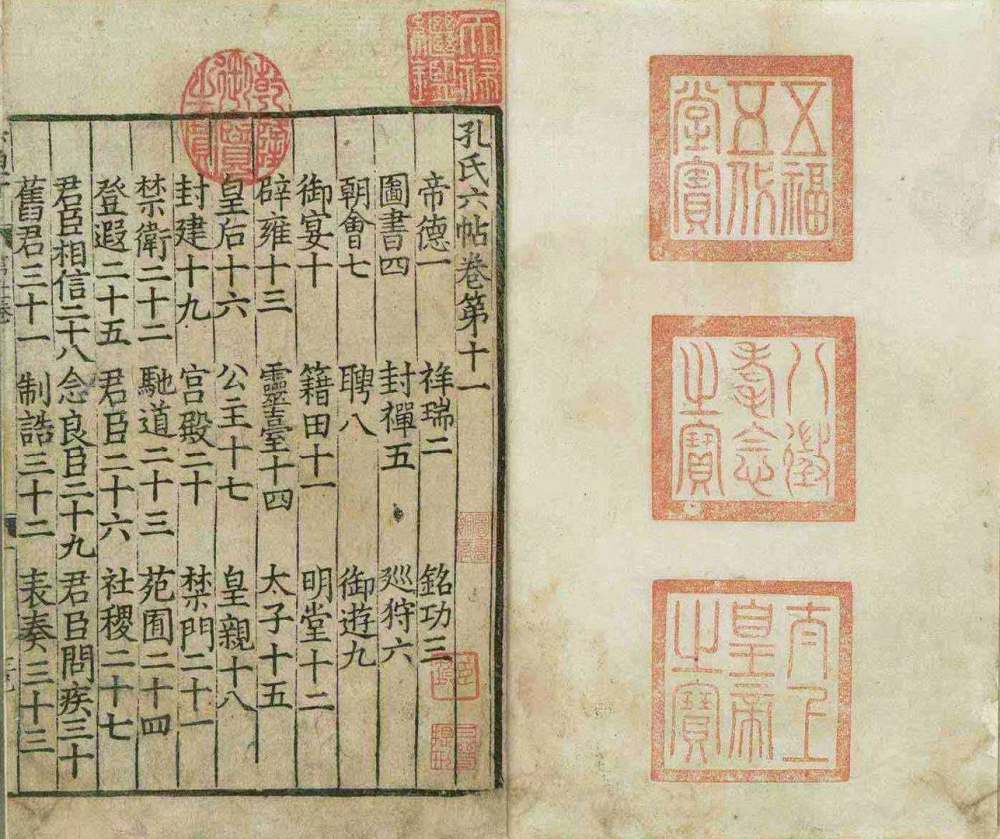 五福五代堂寶
八徵耄念之寶
太上皇帝之寶
天祿繼鑑
乾隆御覽之寶
孔氏六帖卷第十一
帝德一 祥瑞二 銘功三
圖書四 封禪五 廵狩六
朝會七 聘八 御遊九
御宴十 籍田十一 明堂十二
辟雍十三 靈臺十四 太子十五
皇后十六 公主十七 皇親十八
封建十九 宮殿二十 禁門二十一
禁衛二十二 馳道二十三 苑囿二十四
登遐二十五 君臣二十六 社稷二十七
君臣相信二十八 念良臣二十九 君臣問疾三十
舊君三十一 制誥三十二 表奏三十三